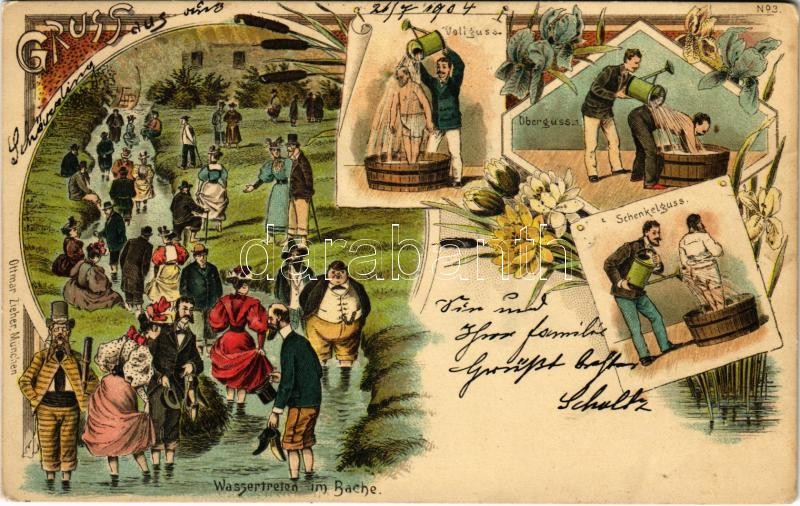 Gruss aus
21/7 1904
No 3.
Vollguss.
Oberguss.
Schenkelguss.
darabanth.com
Ottmar Zieher, München
Sie und
Ihre familie
Grüßt
Scholtz
Wassertreten im Bache.